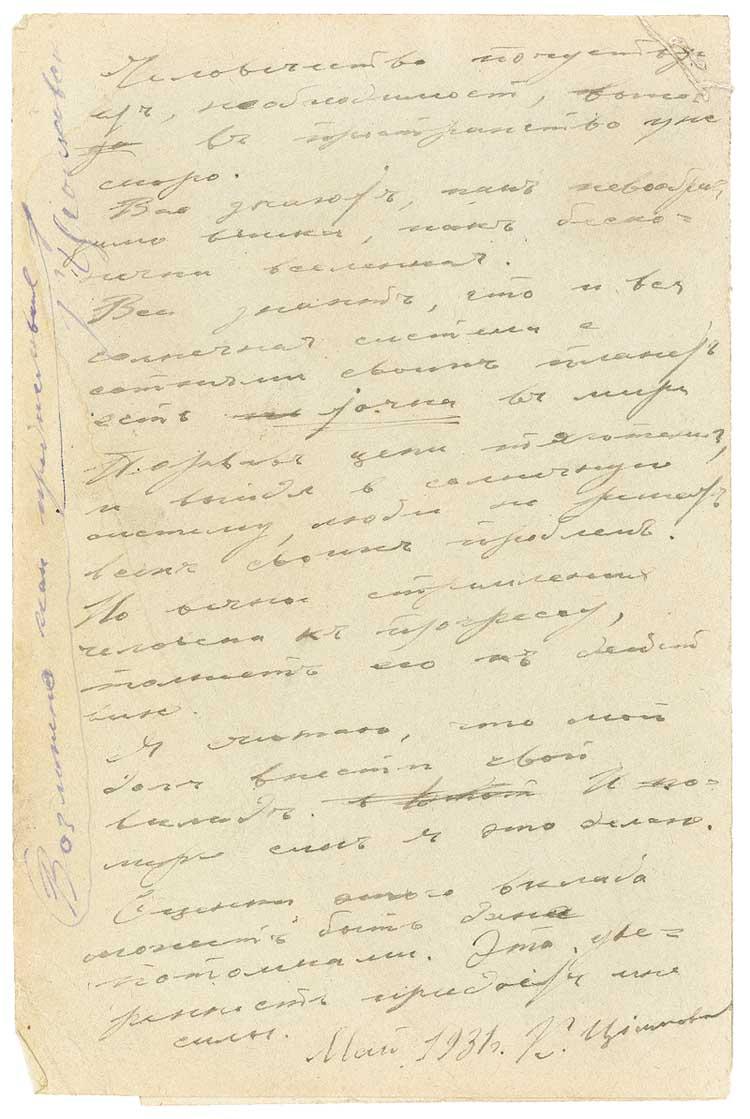 Человечество почувству
ет, необходимост, выхо
да въ пространство уже
скоро.
Все знаютъ, какъ невообраз
имо велика, какъ беско-
нечна вселенная.
Все знаютъ, что и вся
солнечная система с
сотнями своихъ планетъ
есть точка въ мире
Порвавъ цепи тяготения,
и выйдя в солнечную
систему, люди не решатъ
всехъ своихъ проблемъ.
Но вечное стремление
человека къ прогрессу,
толкнетъ его къ действ
вию.
Я считаю, что мой
долг внести свой
вкладъ. И по-
мере силъ я это делаю.
Оценка этого вклада
может быть дана
потомками. Это уве-
ренность придаетъ мне
силы.
Май 1931г. К. Циолковск
Возможно как предисловие
К. Циолковск